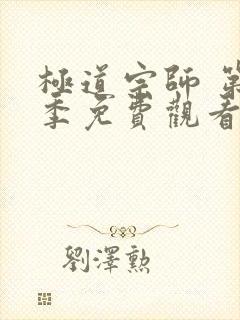 極道宗師 第
季免費觀看
劉澤勲